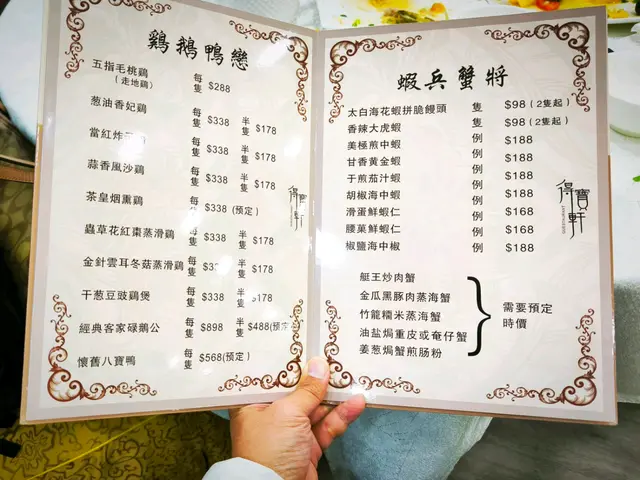 鷄鵝鴨戀
五指毛桃鷄 每隻 $288
(走地鷄)
葱油香妃鷄 每隻 $338 半隻 $178
當紅炸 每隻 $338 半隻 $178
蒜香風沙鷄 每隻 $338 半隻 $178
茶皇烟熏鷄 每隻 $338 (預定)
蟲草花紅棗蒸滑鷄 每隻 $338 半隻 $178
金針雲耳冬菇蒸滑鷄 每隻 半隻 $178
干葱豆豉鷄煲 每隻 $338 半隻 $178
經典客家碌鵝公 每隻 $898 半隻 $488(預定)
懷舊八寶鴨 每隻 $568(預定)
蝦兵蟹將
太白海花蝦拼脆饅頭 隻 $98 (2隻起)
香辣大虎蝦 隻 $98 (2隻起)
美極煎中蝦 例 $188
甘香黄金蝦 例 $188
于煎茄汁蝦 例 $188
胡椒海中蝦 例 $188
滑蛋鮮蝦仁 例 $168
腰菓鮮蝦仁 例 $168
椒鹽海中椒 例 $188
艇王炒肉蟹
金瓜黑豚肉蒸海蟹
竹籠糯米蒸海蟹
油鹽焗重皮或奄仔蟹
姜葱焗蟹煎肠粉
需要預定
時價
得寶軒